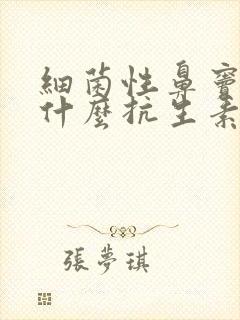 細菌性鼻竇
什麼抗生素
張夢琪